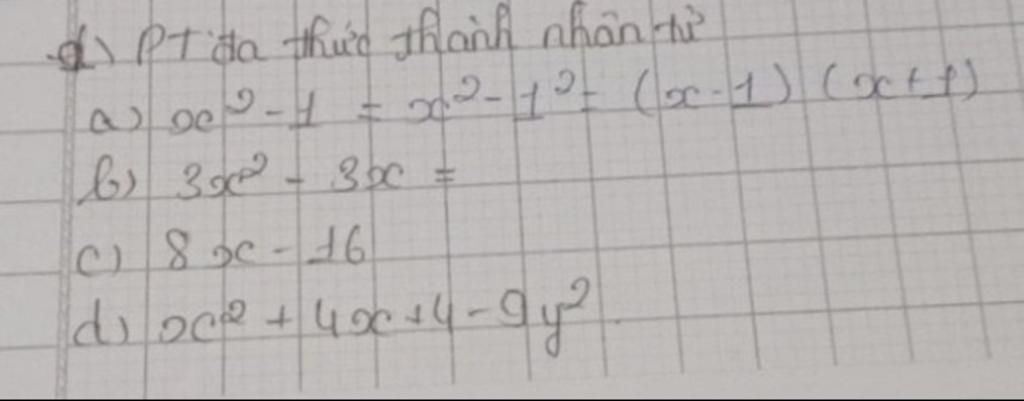 d) PT đa thức thành nhân tử
a) x² - 1 = x² - 1² = (x - 1) (x + 1)
b) 3x² - 3x =
c) 8x - 16
d) x² + 4x + 4 - 9y²